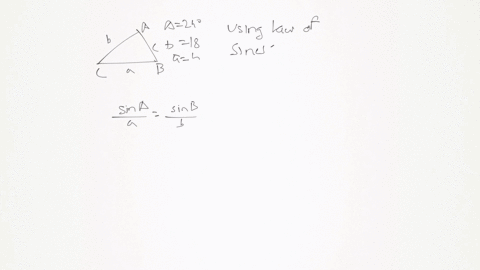 A
b
c
C
a
B
A=24°
b=18
a=4
using law of
sines
sinA/a = sinB/b